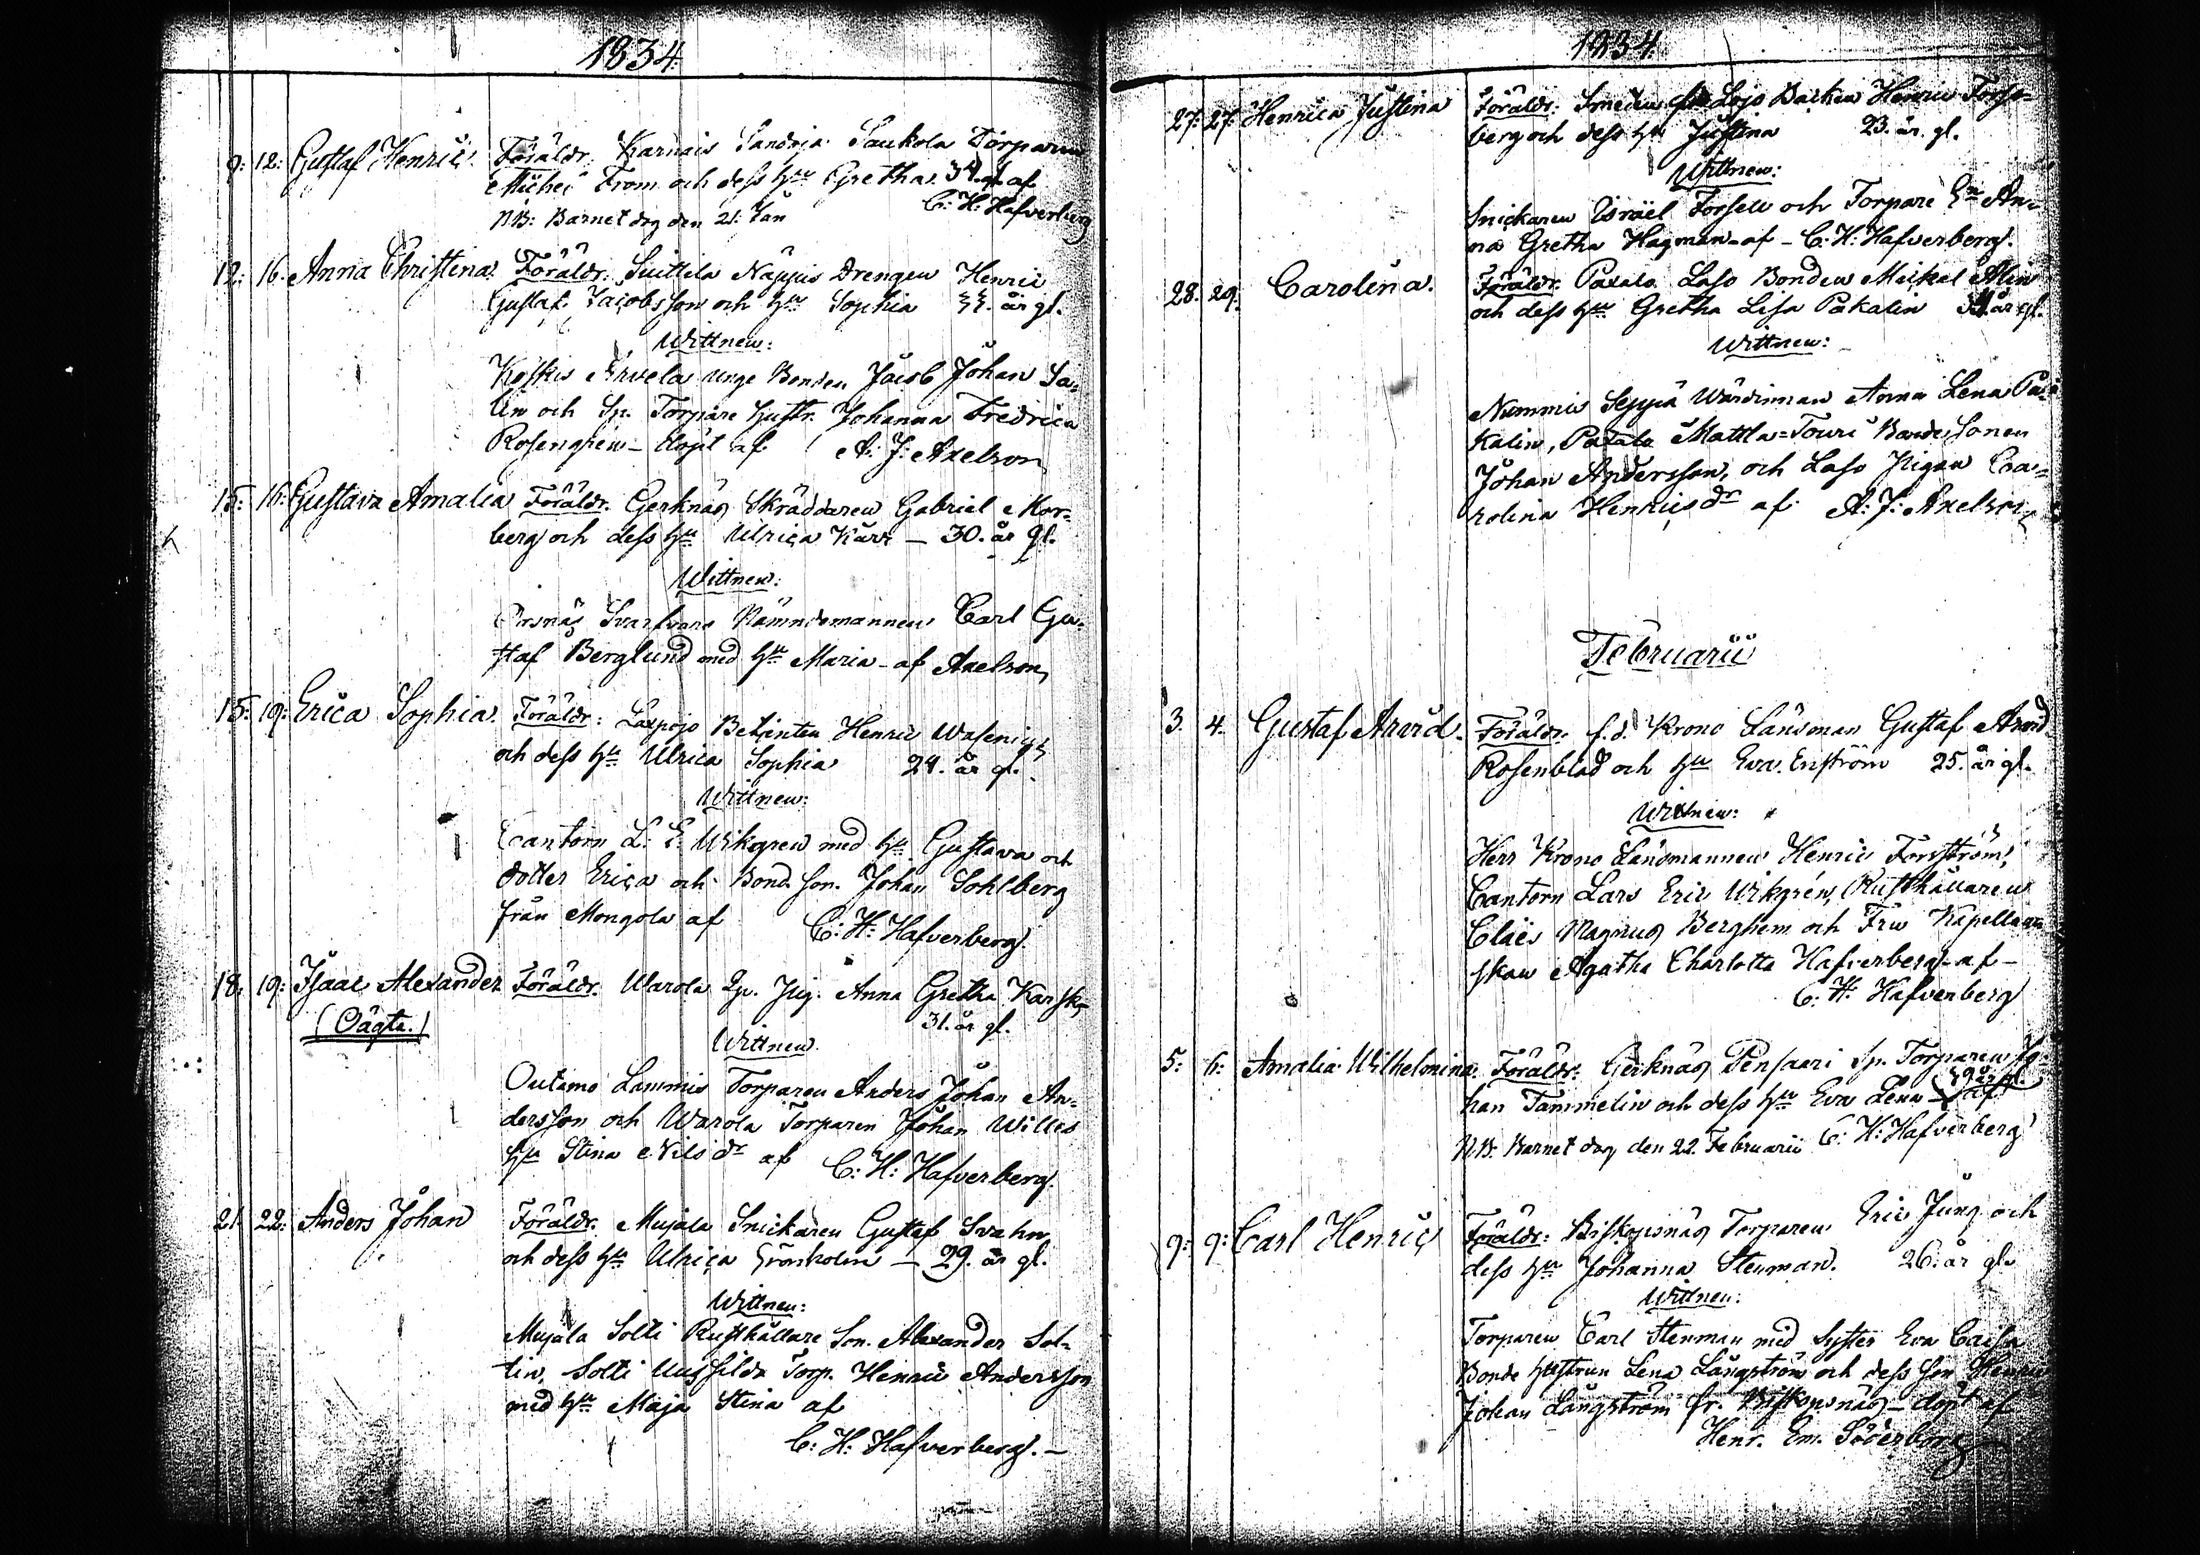 1834.
9. 12. Gustaf Henric. Föräldr. Karnais Sandvja Saukola Torparen
Michel From och dess hu Gretha. 34. af
C. H. Hafverberg
NB: Barnet dog den 21. Jan
12. 16. Anna Christina. Föräldr. Suittila Näppis Drengen Henric
Gustaf Jacobsson och hu Sophia år gl.
Wittnen:
Koskis Arvela unge Bonden Jacob Johan Sa-
lin och Sp. Torpare hustr. Johanna Fredrica
Rosengren - döpt af A. J. Axelson
15. 16. Gustava Amalia Föräldr. Gerknäs Skräddaren Gabriel Mor-
berg och dess hu Ulrica Kärr - 30. år gl.
Wittnen:
Ersnäs Svartvars Nämndemannen Carl Gu-
staf Berglund med hu Maria - af Axelson,
15. 19. Erica Sophia. Föräldr: Laxpojo Betjenten Henric Wasenius
och dess hu Ulrica Sophia 24. år gl.
Wittnen:
Cantorn L. E. Wikgren med hu Gustava och
dotter Erica och Bond. son. Johan Sohlberg
från Mongola af C. H. Hafverberg.
18. 19. Isaac Alexander Föräldr. Warola Sp. Pig. Anna Gretha Karsk,
(Oägta.) 31. år gl.
Wittnen.
Outamo Lammis Torparen Anders Johan An-
dersson och Warola Torparen Johan Willes
hu Stina Nils dr af C. H. Hafverberg.
21. 22. Anders Johan Föräldr. Mujala Snickaren Gustaf Svahn
och dess hu Ulrica Grönholm - 29. år gl.
Wittnen:
Mujala Solti Rusthållare Son. Alexander Sol-
tin, Solti Torp. Henric Andersson
med hu Maja Stina af
C. H. Hafverberg. -
1834.
27. 27. Henrica Justina Föräldr. Smeden fr. Lojo Backen Henric Forss-
berg och dess hu Justina 23. år. gl.
Wittnen:
Snickaren Israël Forsell och Torpare En An-
na Gretha Hagman - af - C. H. Hafverberg.
28. 29. Carolina. Föräldr. Paxalo Laso Bonden Mickel Alin
och dess hu Gretha Lisa Pakalin år gl.
Wittnen:
Nummis Seppä Wärdinnan Anna Lena Pa-
kalin, Paxalo Mattla-Touri Bonde Sonen
Johan Andersson, och Laso Pigan Ca-
rolina Henrics dr af A. J. Axelson,
Februarii
3. 4. Gustaf Arvid. Föräldr. f.d. Krono Länsman Gustaf Arvid
Rosenblad och hu Eva. Enström 25. år gl.
Wittnen:
Herr Krono Länsmannen Henric Forsström,
Cantorn Lars Eric Wikgrén, Rusthållaren
Claës Magnus Berghem och Fru Kapellan-
skan Agatha Charlotta Hafverberg - af -
C. H. Hafverberg
5. 6. Amalia Wilhelmina. Föräldr. Gerknäs Pensaari Sp. Torparen Jo-
han Tammelin och dess hu Eva Lena 39 år gl. af
NB. Barnet dog den 22. Februarii C. H. Hafverberg
9. 9. Carl Henric Föräldr: Biskopsnäs Torparen Eric Jung och
dess hu Johanna Stenman. 26. år gl.
Wittnen:
Torparen Carl Stenman med Syster Eva Caisa
Bonde hustrun Lena Långström och dess son Henric
Johan Långström fr. Biskopsnäs - döpt af
Henr. Em. Söderborg